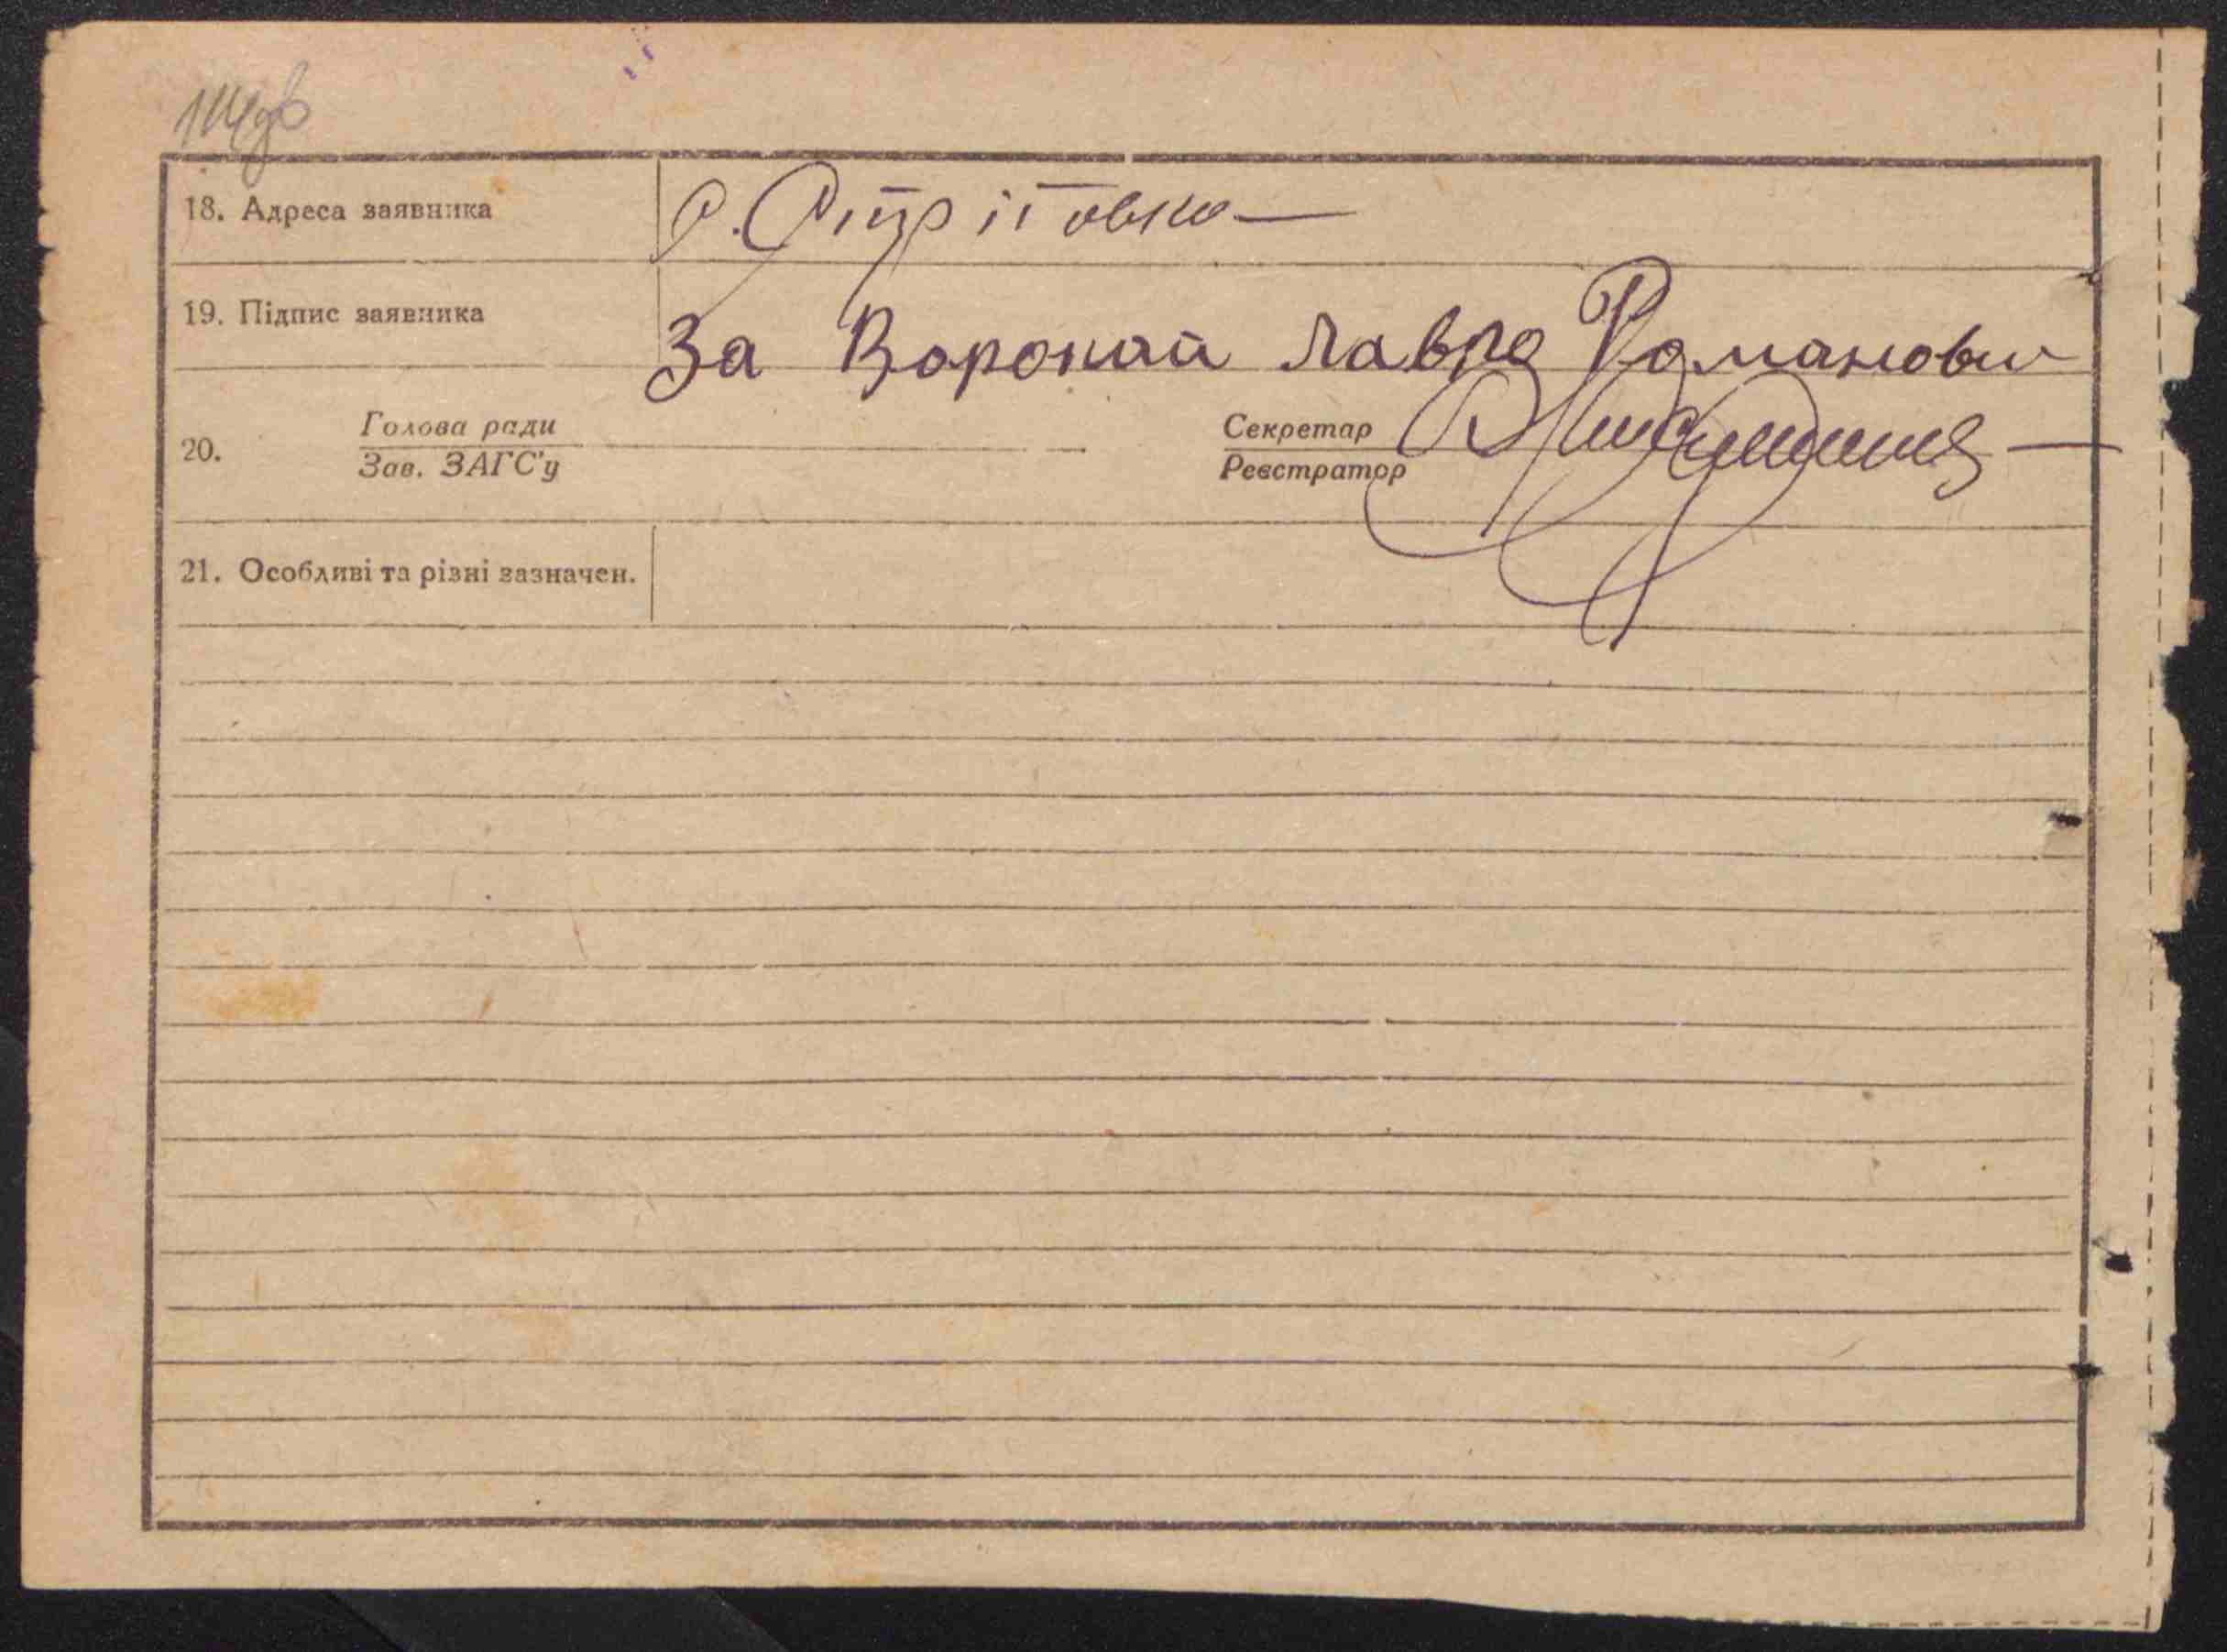 18. Адреса заявника с. Стрітовка
19. Підпис заявника За Воропай Лавро Романови
20. Голова ради Секретар
Зав. ЗАГС'у Реєстратор
21. Особливі та різні зазначен.